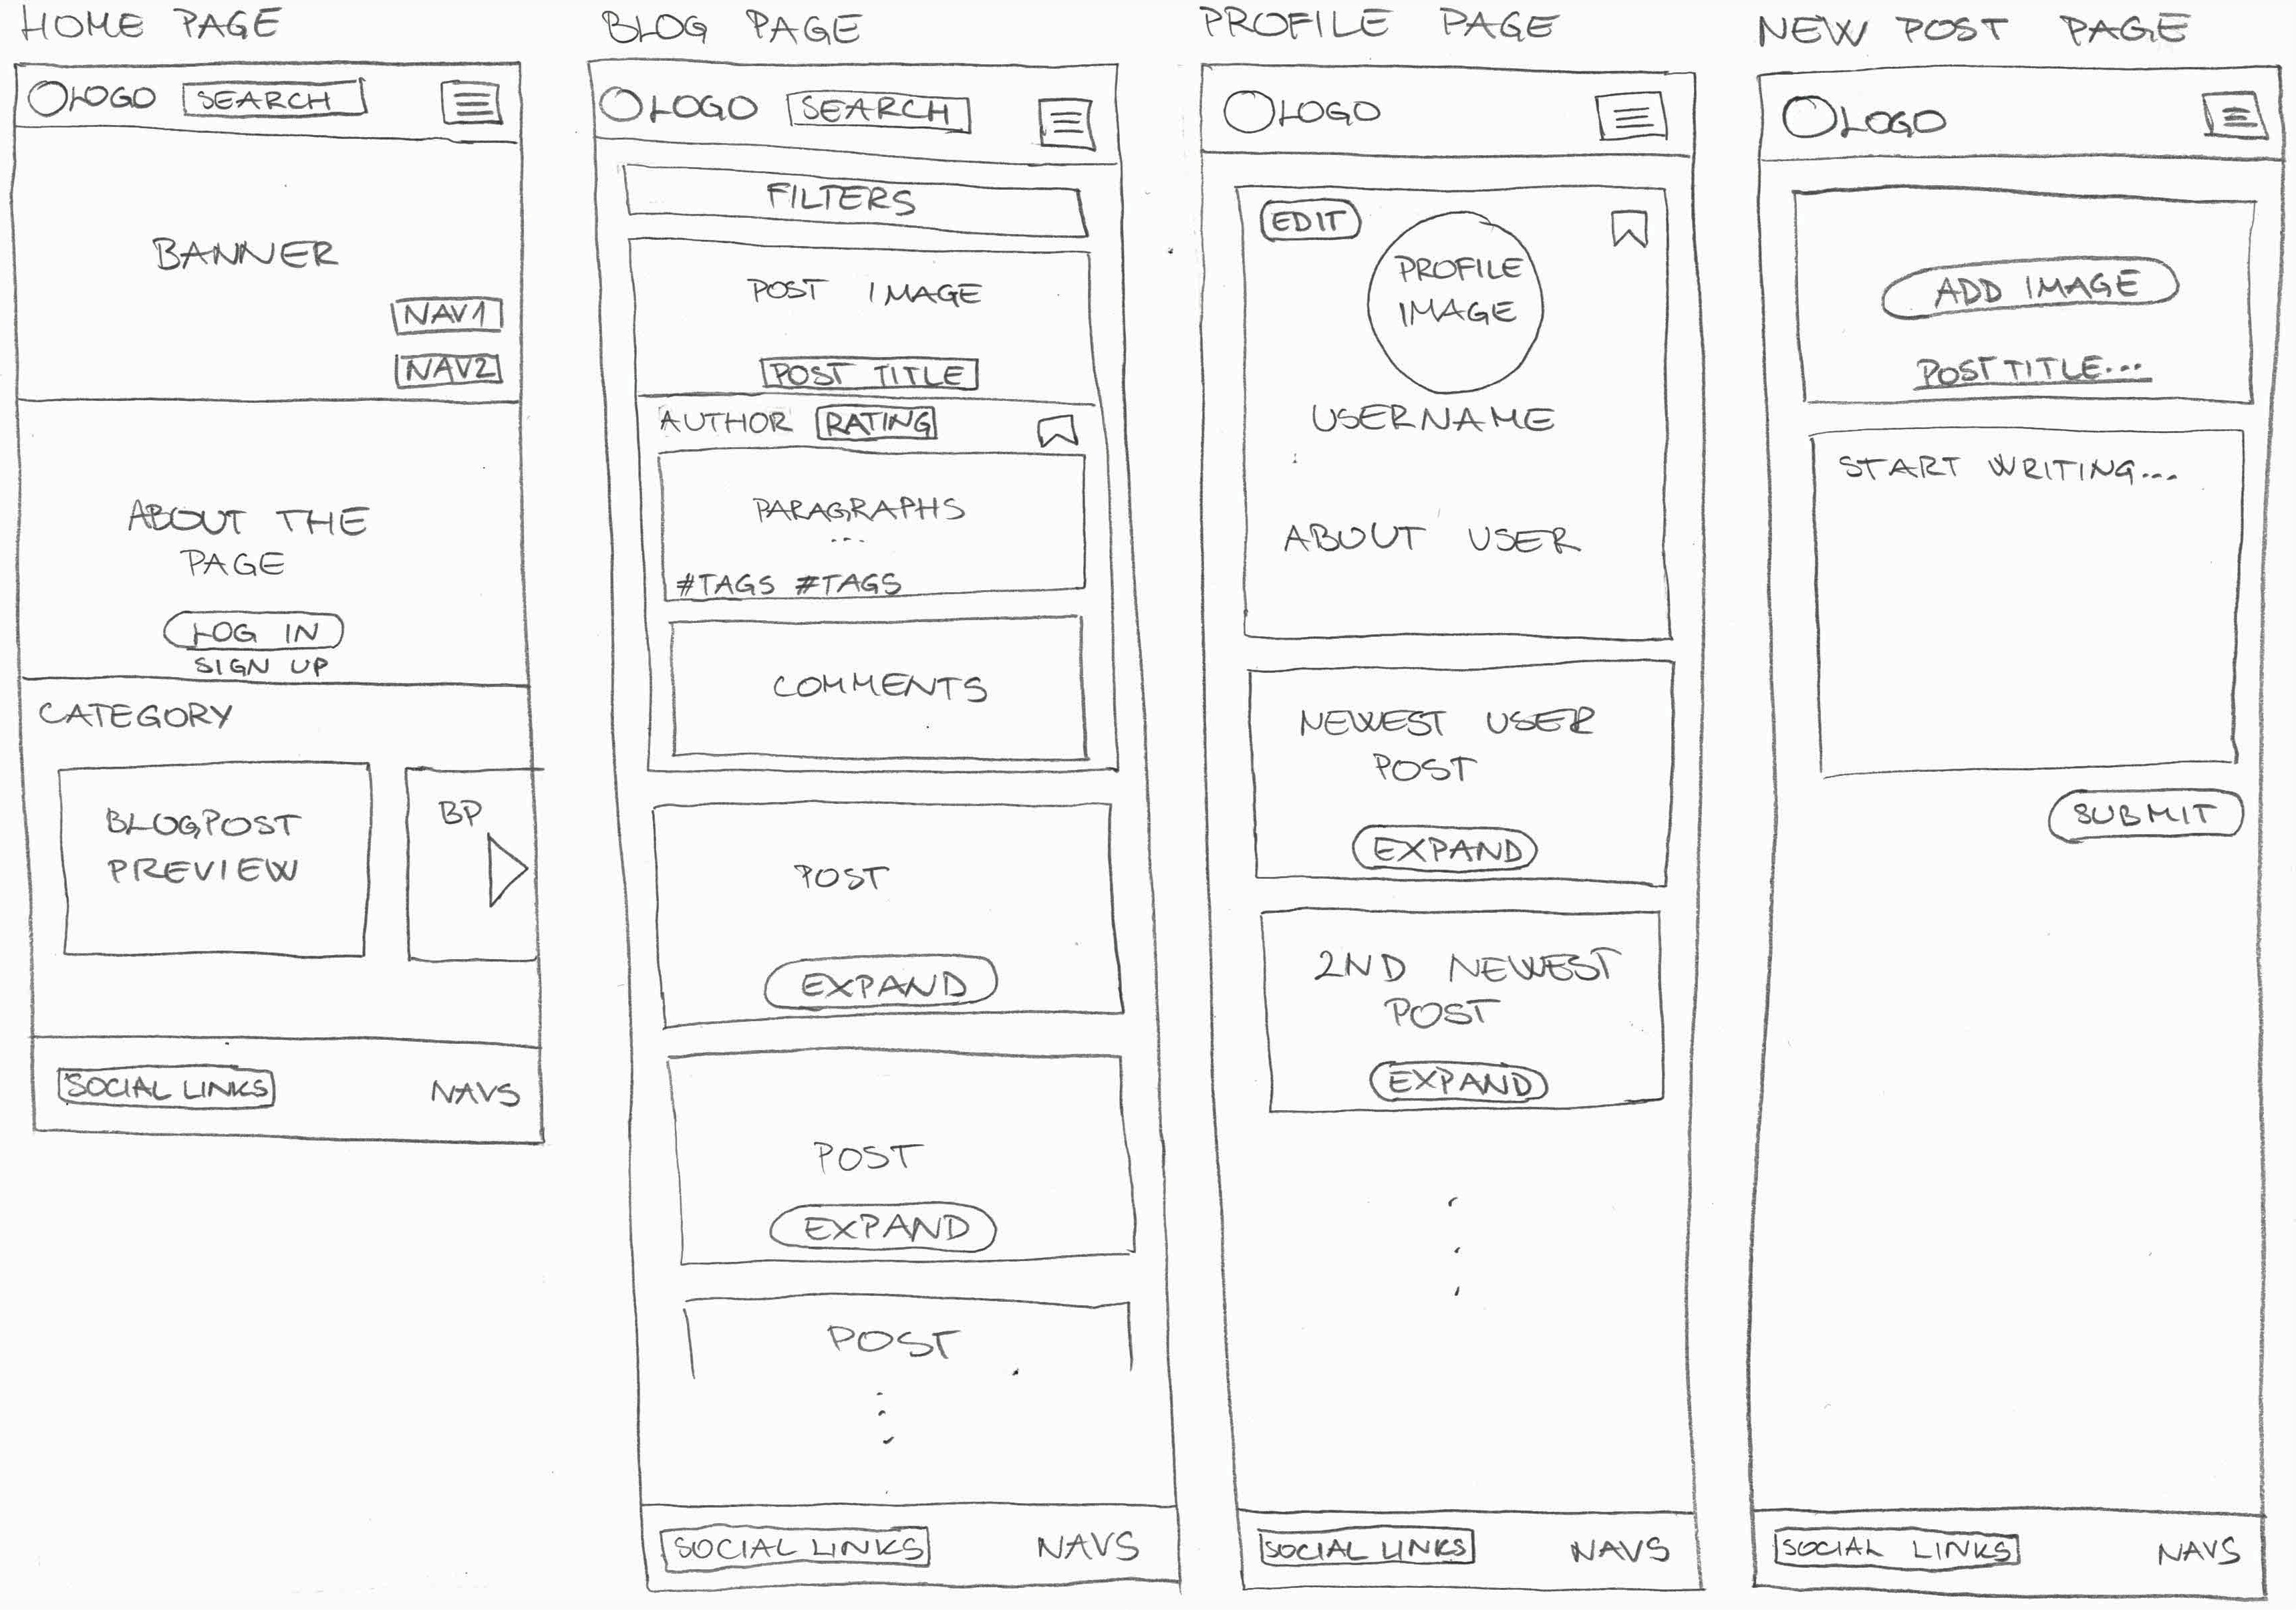 HOME PAGE
LOGO SEARCH
BANNER
NAV1
NAV2
ABOUT THE
PAGE
LOG IN
SIGN UP
CATEGORY
BLOGPOST
PREVIEW
BP
SOCIAL LINKS NAVS
BLOG PAGE
LOGO SEARCH
FILTERS
POST IMAGE
POST TITLE
AUTHOR RATING
PARAGRAPHS
...
#TAGS #TAGS
COMMENTS
POST
EXPAND
POST
EXPAND
POST
SOCIAL LINKS NAVS
PROFILE PAGE
LOGO
EDIT
PROFILE
IMAGE
USERNAME
ABOUT USER
NEWEST USER
POST
EXPAND
2ND NEWEST
POST
EXPAND
SOCIAL LINKS NAVS
NEW POST PAGE
LOGO
ADD IMAGE
POST TITLE...
START WRITING...
SUBMIT
SOCIAL LINKS NAVS